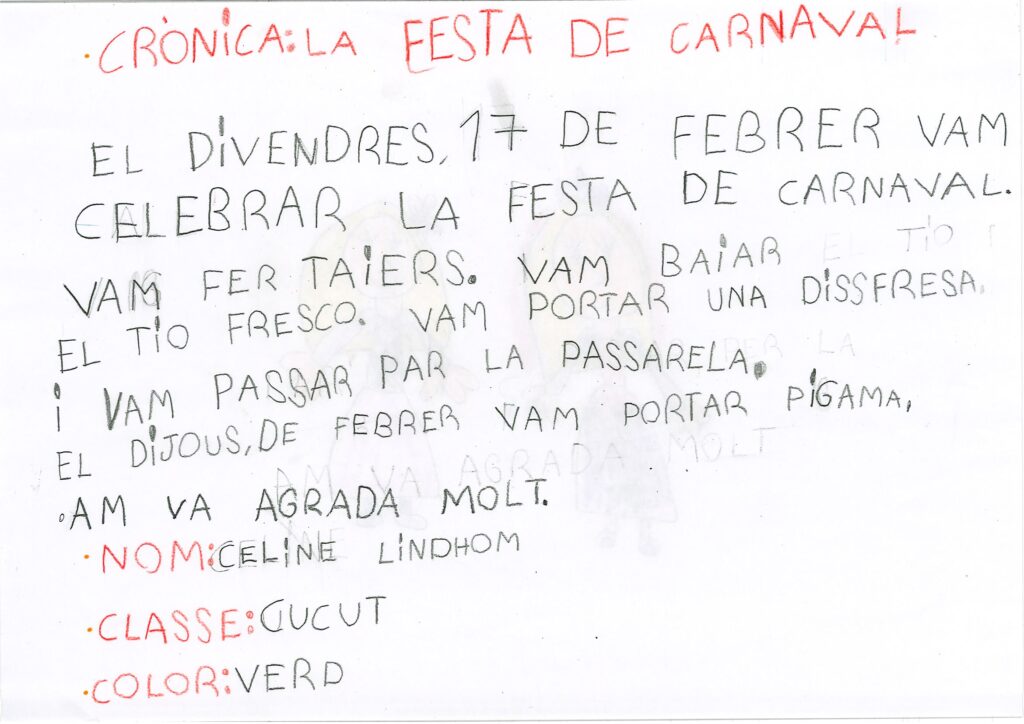 ·CRÒNICA:LA FESTA DE CARNAVAL
EL DIVENDRES, 17 DE FEBRER VAM
CELEBRAR LA FESTA DE CARNAVAL.
VAM FER TAIERS. VAM BAIAR
EL TIO FRESCO. VAM PORTAR UNA DISSFRESA.
I VAM PASSAR PAR LA PASSARELA.
EL DIJOUS, DE FEBRER VAM PORTAR PIGAMA,
.AM VA AGRADA MOLT.
·NOM:CELINE LINDHOM
·CLASSE:CUCUT
·COLOR:VERD